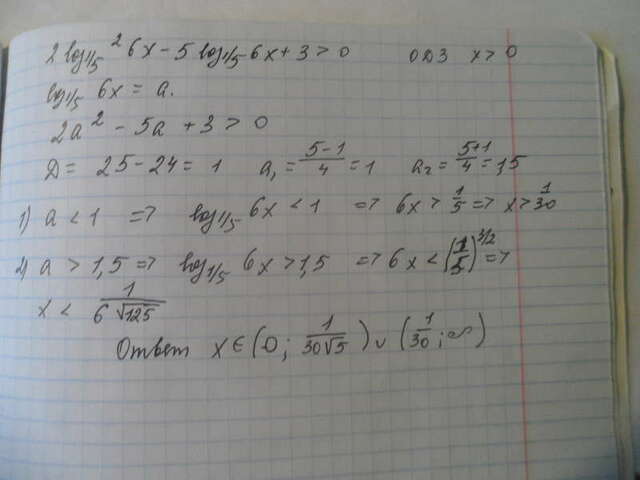 2 log₁/₅² 6x - 5 log₁/₅ 6x + 3 > 0 ОДЗ x > 0
log₁/₅ 6x = a.
2a² - 5a + 3 > 0
D = 25 - 24 = 1 a₁ = (5-1)/4 = 1 a₂ = (5+1)/4 = 1,5
1) a < 1 => log₁/₅ 6x < 1 => 6x > 1/5 => x > 1/30
2) a > 1,5 => log₁/₅ 6x > 1,5 => 6x < (1/5)^3/2 =>
x < 1/(6√125)
Ответ x ∈ (0; 1/(30√5)) ∪ (1/30; ∞)